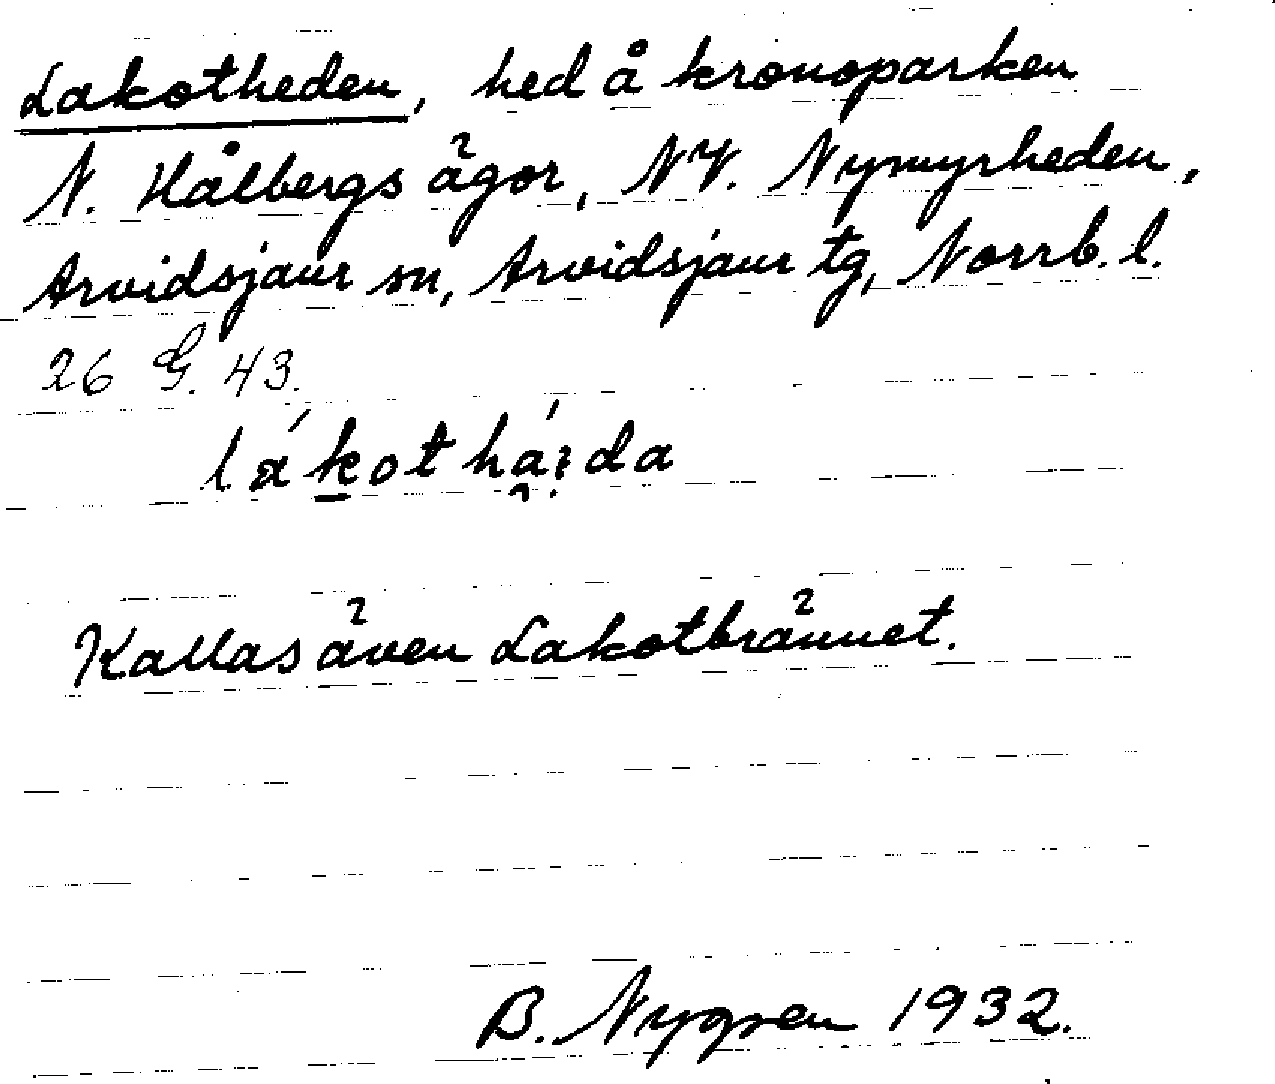 Lakotheden, hed å kronoparken
N. Hålbergs ägor, NV. Nymyrheden,
Arvidsjaur sn, Arvidsjaur tg, Norrb. l.
26 G. 43.
Kallas även Lakotbrännet.
B. Nygren 1932.